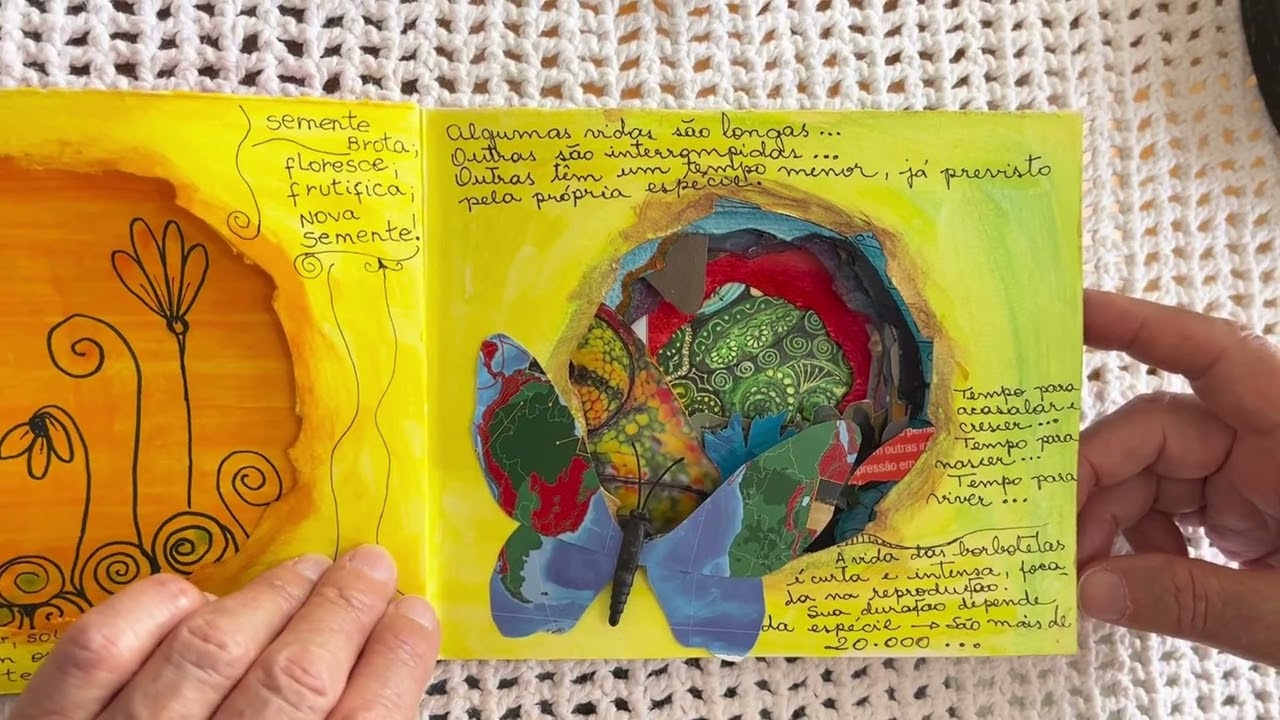 semente
Brota;
floresce;
frutifica;
Nova
Semente!
Algumas vidas são longas...
Outras são interrompidas...
Outras têm um tempo menor, já previsto
pela própria espécie.
Tempo para
acasalar e
crescer...
Tempo para
nascer...
Tempo para
viver...
A vida das borboletas
é curta e intensa, foca-
da na reprodução.
Sua duração depende
da espécie → São mais de
20.000...
em outras
pressão em